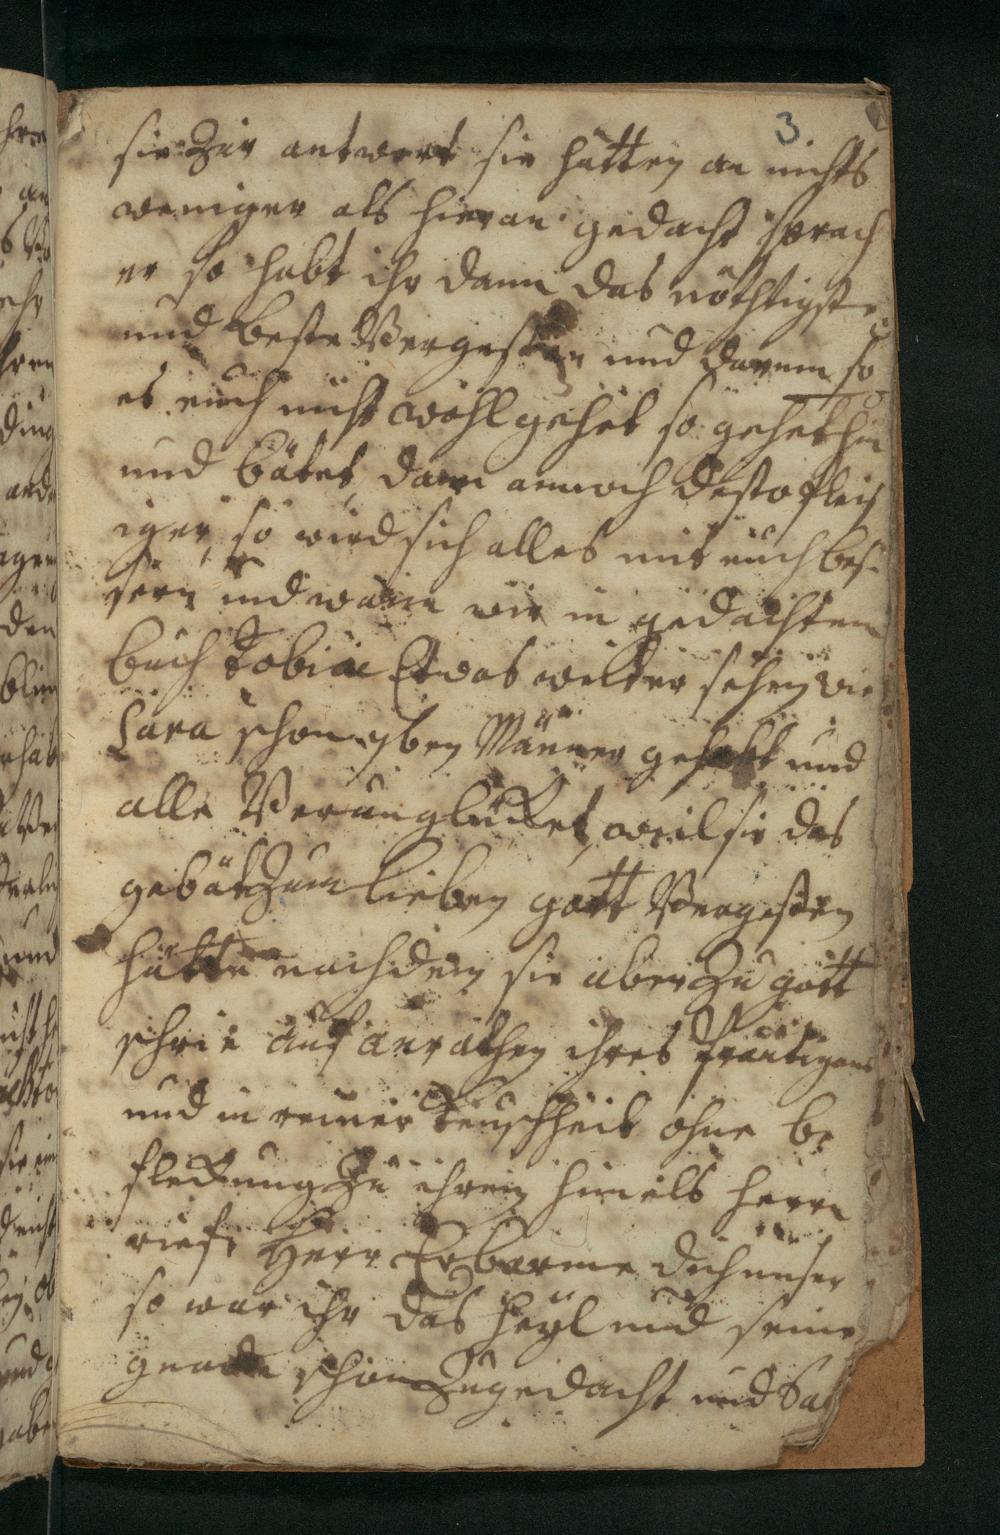 3
sie Zur antwort sie hätten an nichts
weniger als hieran gedacht sprach
er so habt ihr dann das nöthigste
und beste Vergessen und darum so
es euch nicht wohl gehet so gehet hin
und bätet dann annoch desto fleis
iger, so wird sich alles mit euch bes-
sern und wann wir in gedachtem
buch Tobiae Etwas weiter sehen wie
Sara schon 7ben Männer gehabt und
alle Verunglücket, weil sie das
gebät Zum lieben gott Vergessen
hätte nachdem sie aber Zu gott
schrie auf anrathen ihres
und in reiner Keuschheit ohne be
fleckung Zu ihrem himels herrn
rief: Herr Erbarme dich unser
so war ihr das heyl und seine
gnade schon Zugedacht und